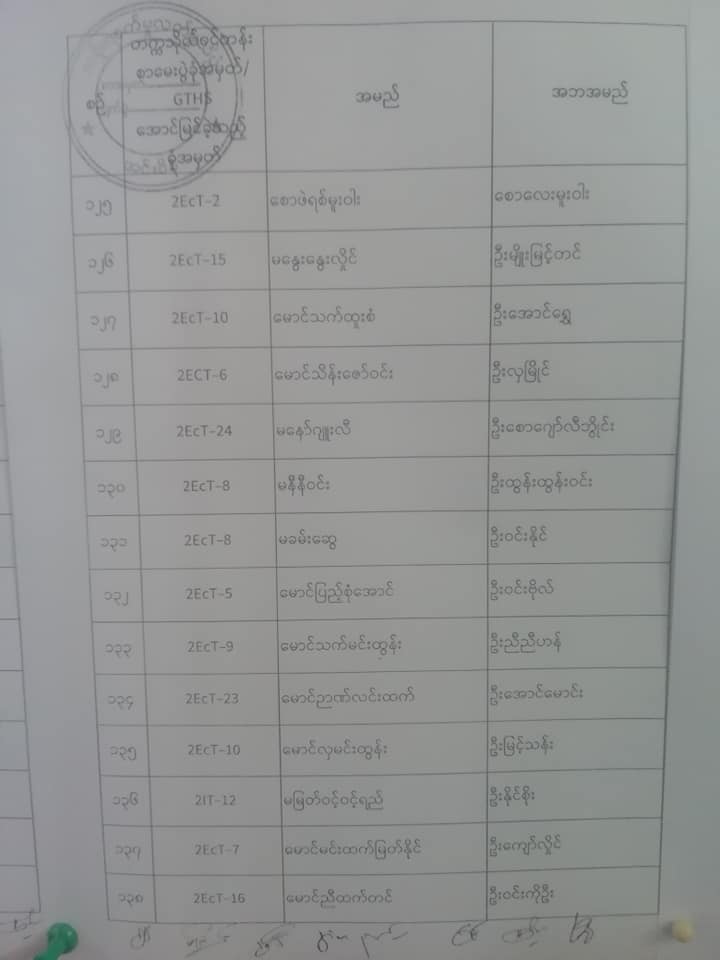 စဉ် တက္ကသိုလ်ဝင်တန်း စာမေးပွဲခုံအမှတ်/ GTHS အောင်မြင်ခဲ့သည့် ခုံအမှတ် အမည် အဘအမည်
၁၂၅ 2EcT-2 စောဖဲရစ်မူးဝါး စောလေးမူးဝါး
၁၂၆ 2EcT-15 မနွေးနွေးလှိုင် ဦးမျိုးမြင့်တင်
၁၂၇ 2EcT-10 မောင်သက်ထူးစံ ဦးအောင်ရွှေ
၁၂၈ 2ECT-6 မောင်သိန်းဇော်ဝင်း ဦးလှမြိုင်
၁၂၉ 2EcT-24 မနော်ဂျူးလီ ဦးစောဂျော်လီဘွိုင်း
၁၃၀ 2EcT-8 မနီနီဝင်း ဦးထွန်းထွန်းဝင်း
၁၃၁ 2EcT-8 မခမ်းဆွေ ဦးဝင်းနိုင်
၁၃၂ 2EcT-5 မောင်ပြည့်စုံအောင် ဦးဝင်းဗိုလ်
၁၃၃ 2EcT-9 မောင်သက်မင်းထွန်း ဦးညီညီဟန်
၁၃၄ 2EcT-23 မောင်ဉာဏ်လင်းထက် ဦးအောင်မောင်း
၁၃၅ 2EcT-10 မောင်လှမင်းထွန်း ဦးမြင့်သန်း
၁၃၆ 2IT-12 မမြတ်ဝင့်ဝင့်ရည် ဦးနိုင်စိုး
၁၃၇ 2EcT-7 မောင်မင်းထက်မြတ်နိုင် ဦးကျော်လှိုင်
၁၃၈ 2EcT-16 မောင်ညီထက်တင် ဦးဝင်းကိုဦး